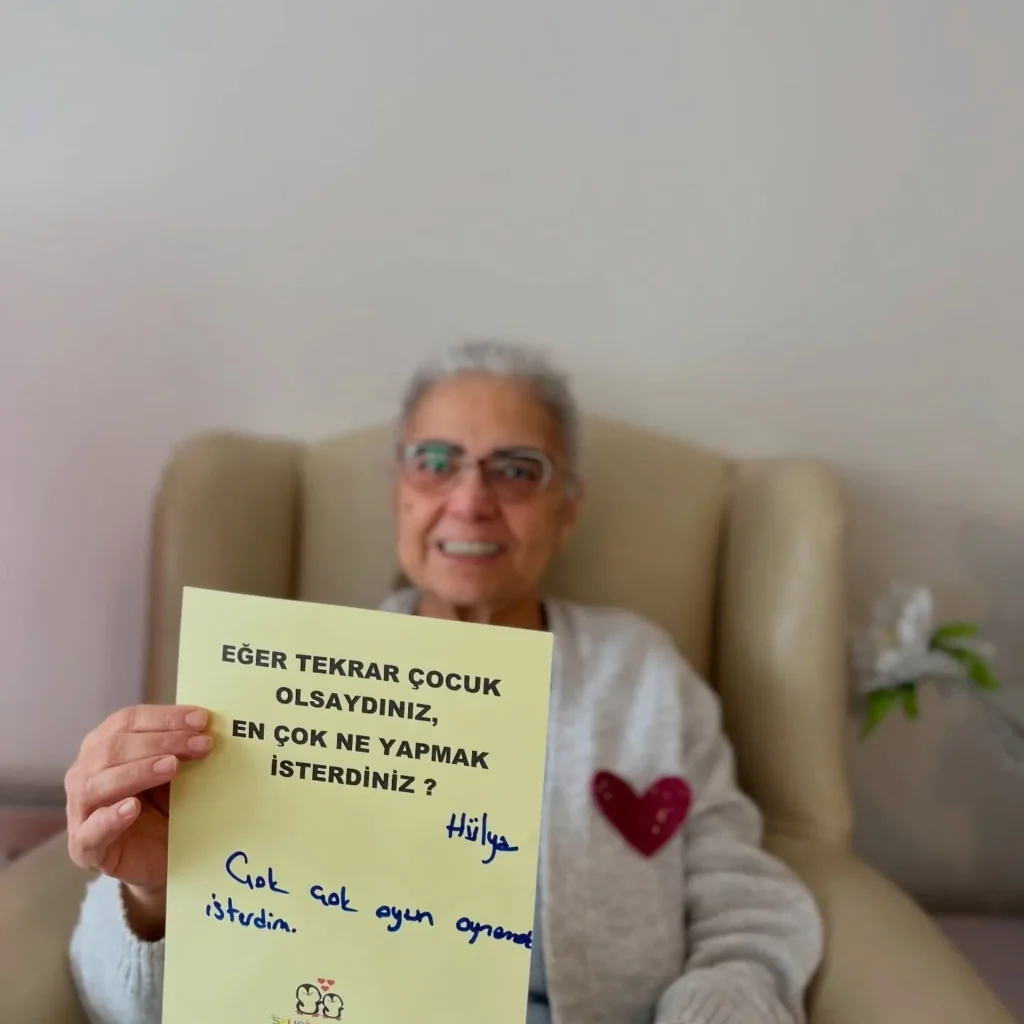 EĞER TEKRAR ÇOCUK
OLSAYDINIZ,
EN ÇOK NE YAPMAK
İSTERDİNİZ ?
Hülya
Çok çok oyun oynamak
isterdim.